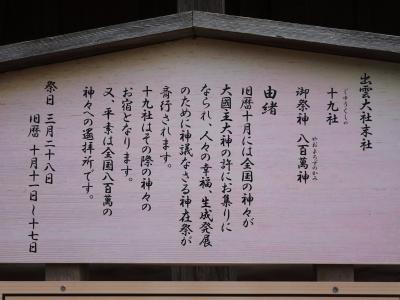 出雲大社末社
十九社
じゅうくしゃ
御祭神 八百萬神
やおよろずのかみ
由緒
旧暦十月には全国の神々が
大國主大神の許にお集りに
なられ、人々の幸福、生成発展
のために神議なさる神在祭が
斎行されます。
十九社はその際の神々の
お宿となります。
又、平素は全国八百萬の
神々への遥拝所です。
祭日 三月二十八日
旧暦 十月十一日〜十七日